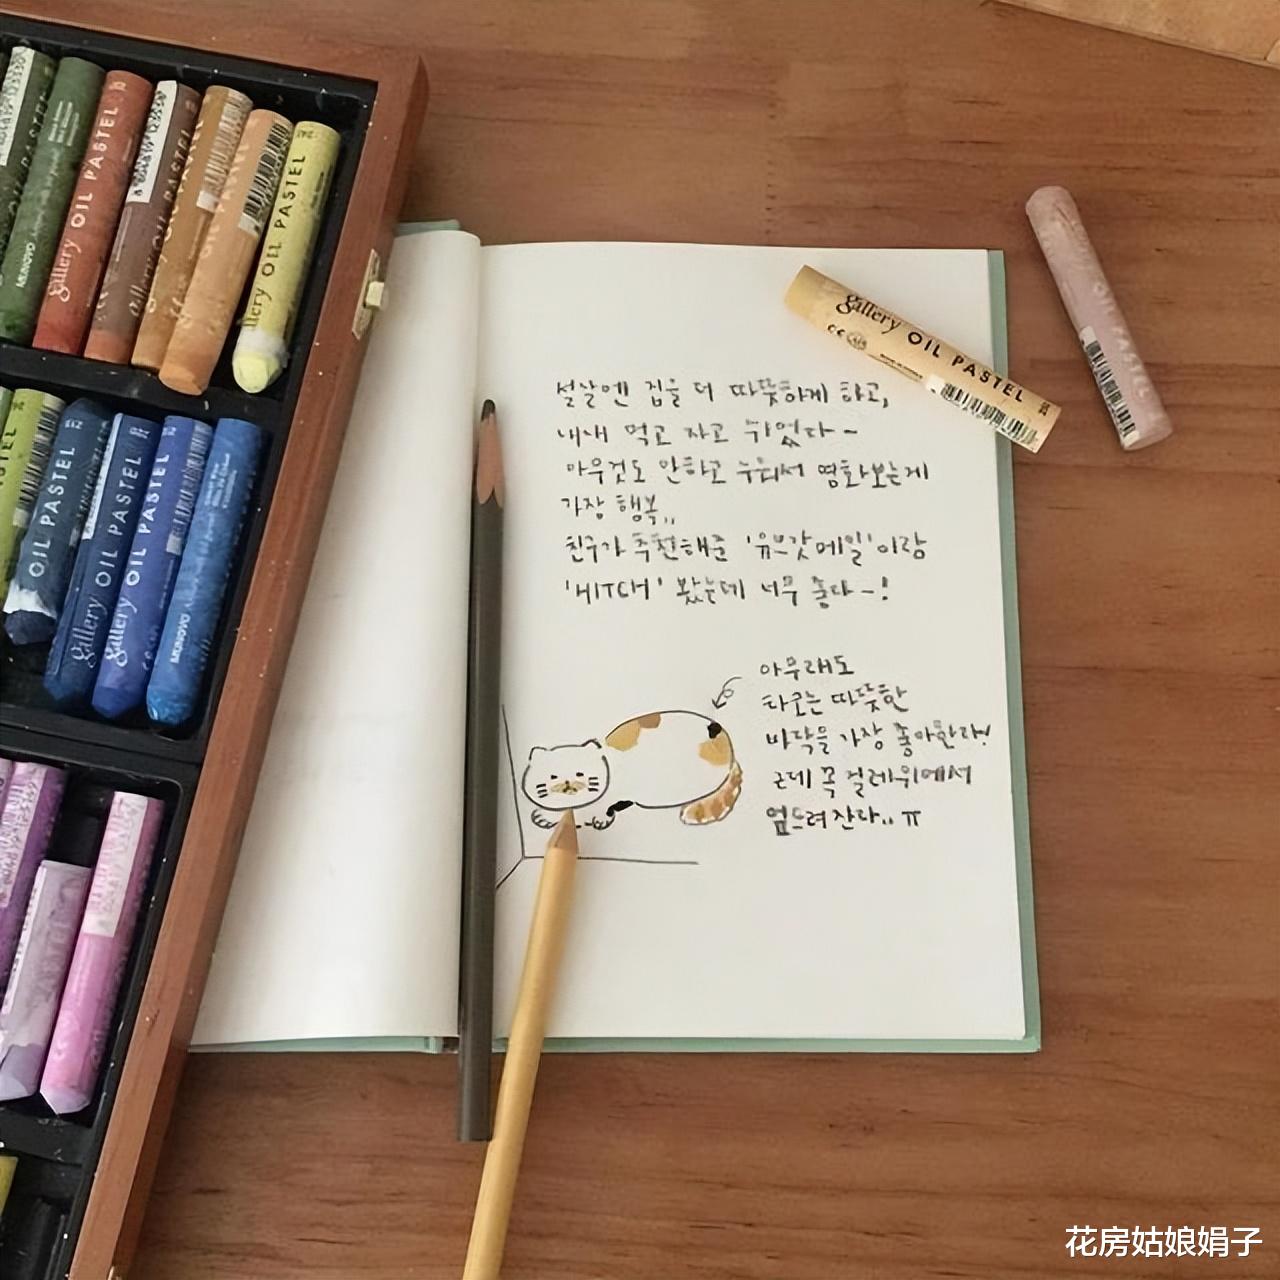 설날엔 집을 더 따뜻하게 하고,
내내 먹고 자고 쉬었다~
아무것도 안하고 누워서 영화보는게
가장 행복,,
친구가 추천해준 '유브갓메일'이랑
'HITCH' 봤는데 너무 좋다~!
아무래도
타로는 따뜻한
바닥을 가장 좋아한다!
근데 꼭 걸레위에서
엎드려잔다.. ㅠ
gallery OIL PASTEL
gallery OIL PASTEL
OIL PASTEL
gallery OIL PASTEL
MUNGYO
OIL PASTEL
gallery OIL PASTEL
gallery OIL PASTEL
MUNGYO
花房姑娘娟子